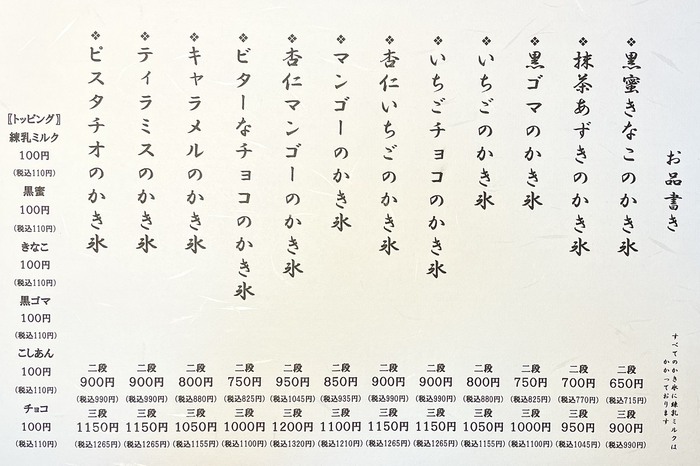 お品書き
すべてのかき氷に練乳ミルクは
かかっております
❖黒蜜きなこのかき氷
二段
650円
(税込715円)
三段
900円
(税込990円)
❖抹茶あずきのかき氷
二段
700円
(税込770円)
三段
950円
(税込1045円)
❖黒ゴマのかき氷
二段
750円
(税込825円)
三段
1000円
(税込1100円)
❖いちごのかき氷
二段
800円
(税込880円)
三段
1050円
(税込1155円)
❖いちごチョコのかき氷
二段
900円
(税込990円)
三段
1150円
(税込1265円)
❖杏仁いちごのかき氷
二段
900円
(税込990円)
三段
1150円
(税込1265円)
❖マンゴーのかき氷
二段
850円
(税込935円)
三段
1100円
(税込1210円)
❖杏仁マンゴーのかき氷
二段
950円
(税込1045円)
三段
1200円
(税込1320円)
❖ビターなチョコのかき氷
二段
750円
(税込825円)
三段
1000円
(税込1100円)
❖キャラメルのかき氷
二段
800円
(税込880円)
三段
1050円
(税込1155円)
❖ティラミスのかき氷
二段
900円
(税込990円)
三段
1150円
(税込1265円)
❖ピスタチオのかき氷
二段
900円
(税込990円)
三段
1150円
(税込1265円)
〖トッピング〗
練乳ミルク
100円
(税込110円)
黒蜜
100円
(税込110円)
きなこ
100円
(税込110円)
黒ゴマ
100円
(税込110円)
こしあん
100円
(税込110円)
チョコ
100円
(税込110円)